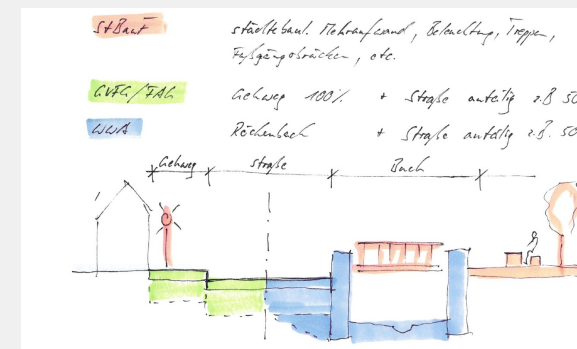 StBauF städtebaul. Mehraufwand, Beleuchtung, Treppen,
Fußgängerbrücken, etc.
GVFG/FAG Gehweg 100% + Straße anteilig z.B 50
WWA Röthenbach + Straße anteilig z.B. 50
Gehweg Straße Bach